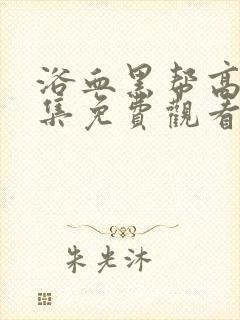 浴血黑帮高
集免費觀看
朱光沐